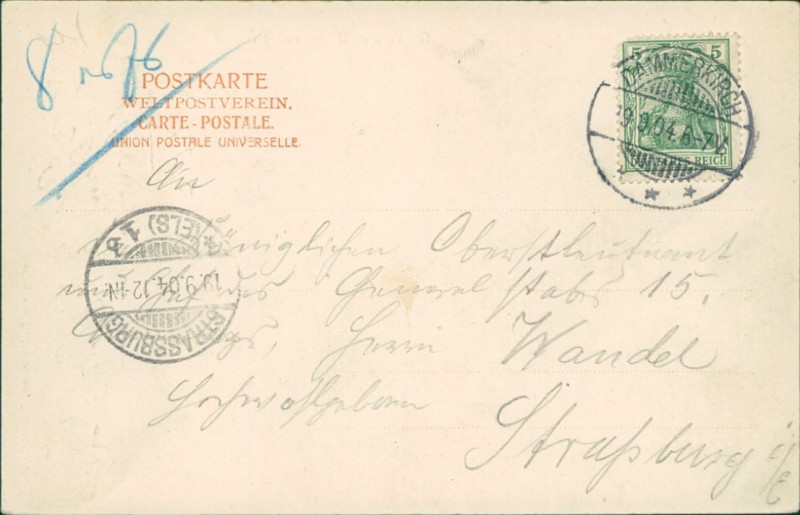 8
POSTKARTE
WELTPOSTVEREIN.
CARTE-POSTALE.
UNION POSTALE UNIVERSELLE.
5 5
REICH
DAMMERKIRCH
9.9.04.6-7
STRASSBURG (ELS) 1
9.04.12-1N
An
Königlichen Oberstleutnant
und Chef des General stabs 15.
Herrn Wandel
Hochwohlgeboren
Straßburg i/E